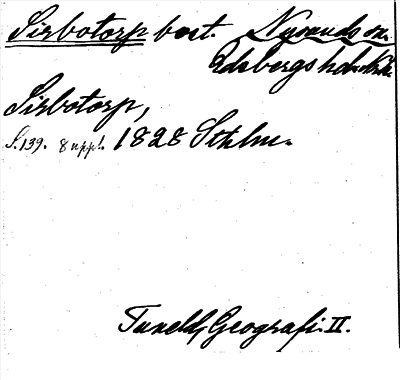 Sirbotorp best. Nysunds sn.
Edsbergs hd
Sirbotorp,
S. 139. 8 uppl. 1828 Sthlm.
Tuneld, Geografi. II.